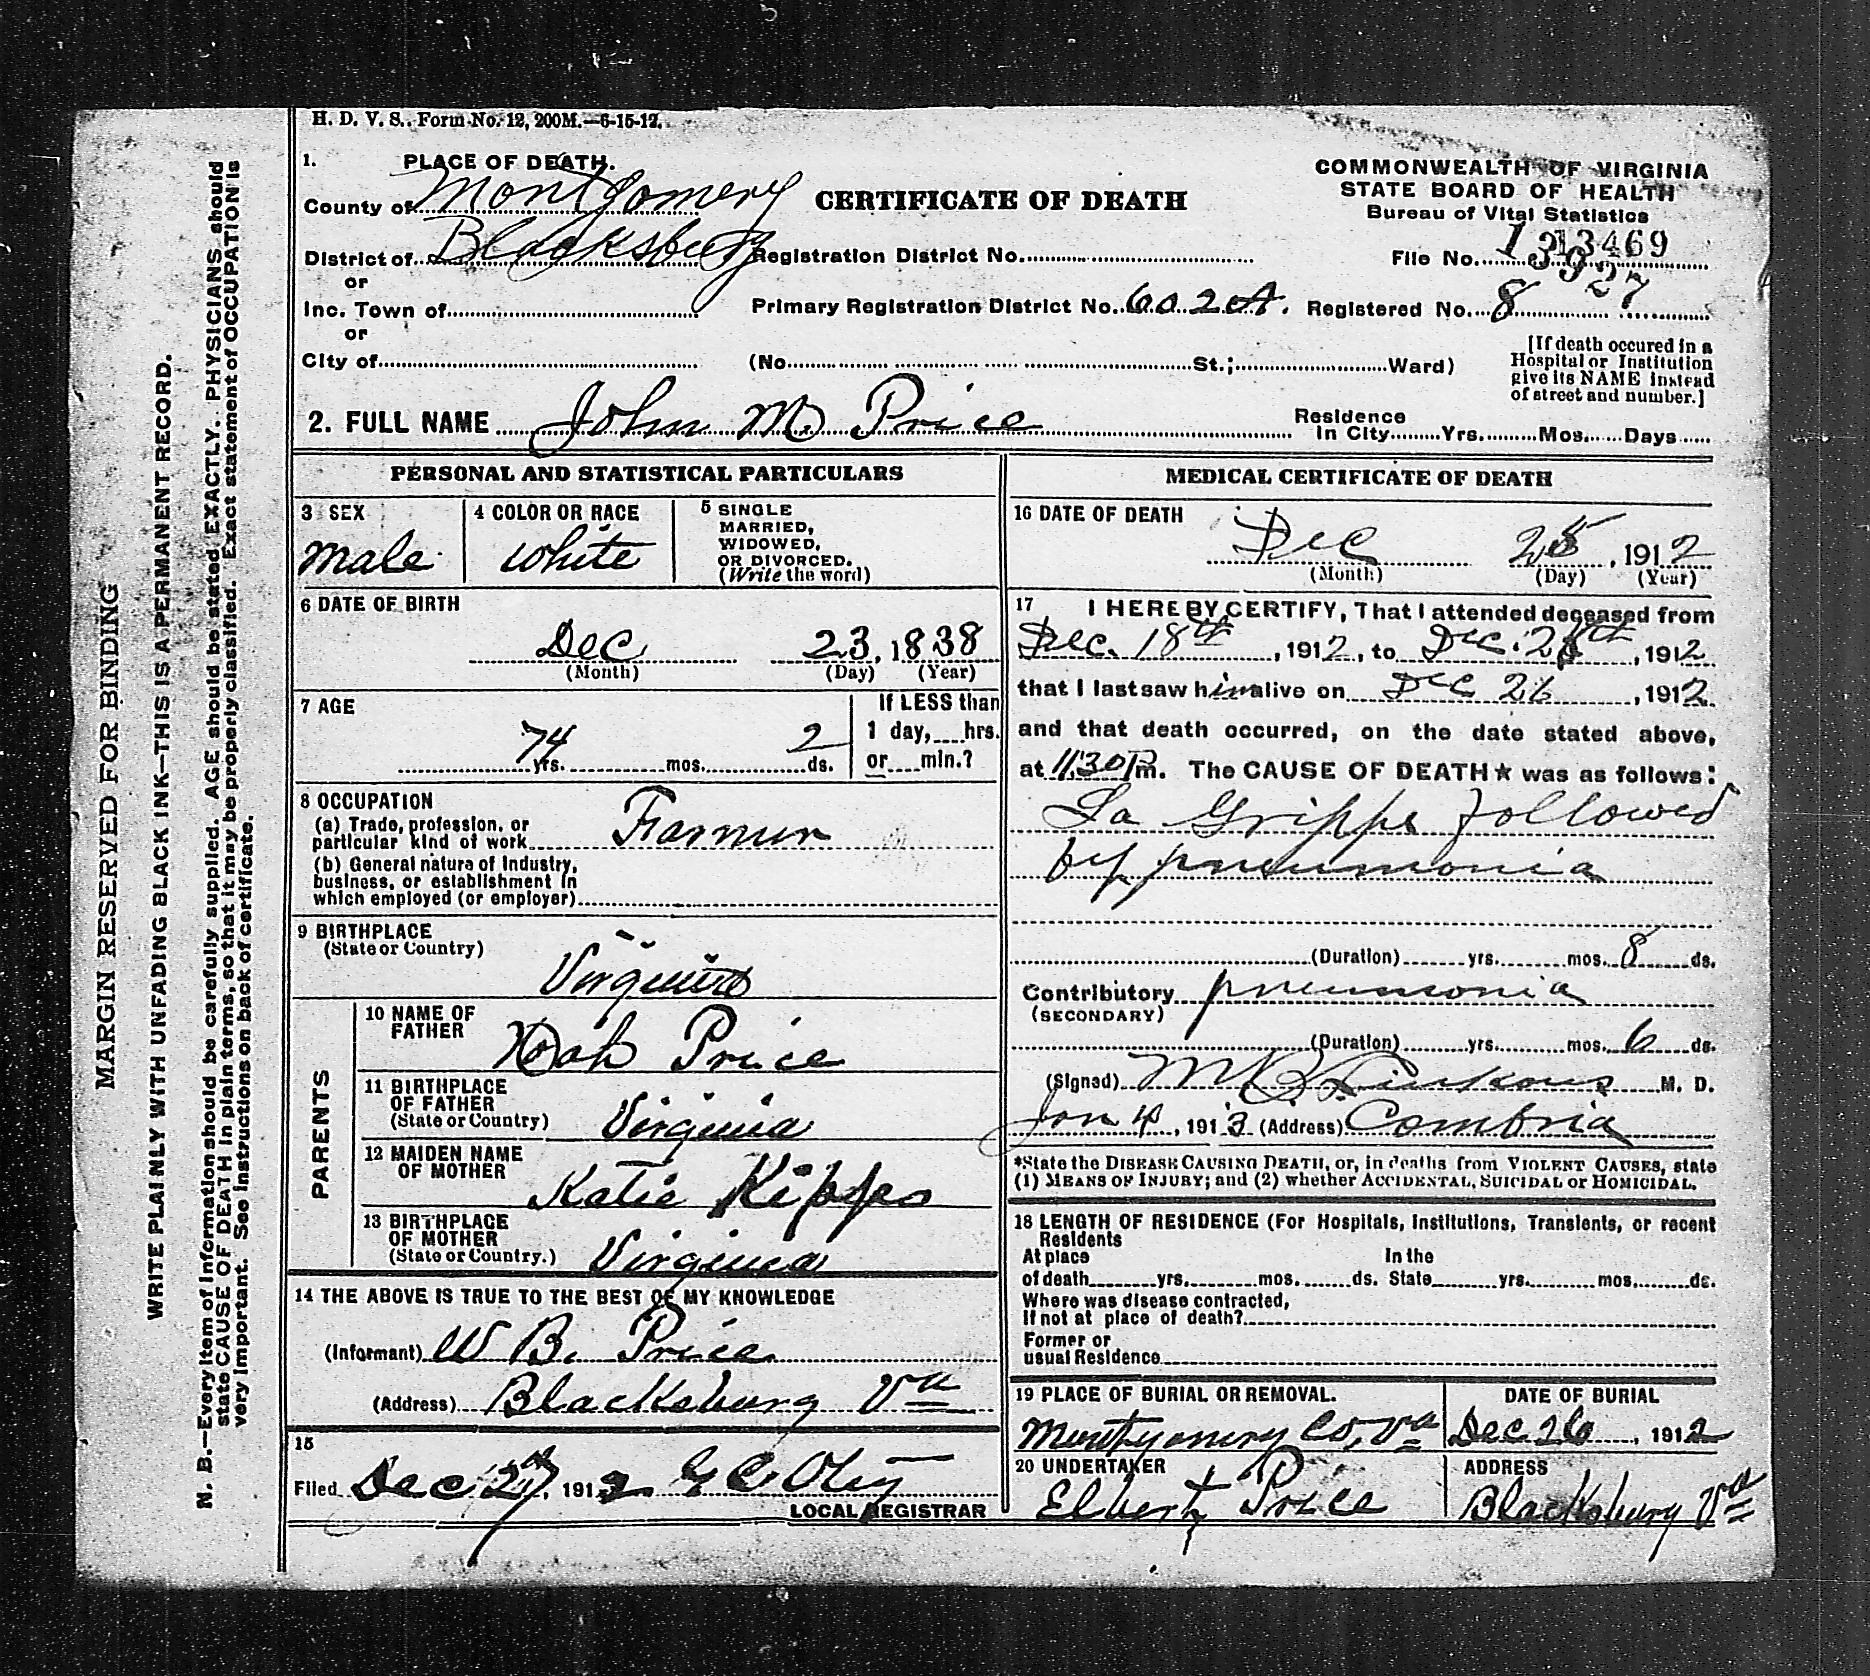 H. D. V. S.. Form No. 12, 200M.—6-15-12.
1. PLACE OF DEATH.
County of Montgomery
District of Blacksburg
or
Inc. Town of
or
City of
CERTIFICATE OF DEATH
Registration District No.
Primary Registration District No. 602A.
(No. St.; Ward)
COMMONWEALTH OF VIRGINIA
STATE BOARD OF HEALTH
Bureau of Vital Statistics
File No. 13469
13927
Registered No. 8
[If death occured in a
Hospital or Institution
give its NAME instead
of street and number.]
2. FULL NAME John M Price
Residence
In City Yrs. Mos. Days
PERSONAL AND STATISTICAL PARTICULARS
3 SEX
male
4 COLOR OR RACE
white
5 SINGLE
MARRIED,
WIDOWED,
OR DIVORCED.
(Write the word)
6 DATE OF BIRTH
Dec 23, 1838
(Month) (Day) (Year)
7 AGE
74 yrs. mos. 2 ds.
If LESS than
1 day, hrs.
or min.?
8 OCCUPATION
(a) Trade, profession, or
particular kind of work Farmer
(b) General nature of Industry,
business, or establishment in
which employed (or employer)
9 BIRTHPLACE
(State or Country)
Virginia
PARENTS
10 NAME OF
FATHER
Noah Price
11 BIRTHPLACE
OF FATHER
(State or Country)
Virginia
12 MAIDEN NAME
OF MOTHER
Katie Kipps
13 BIRTHPLACE
OF MOTHER
(State or Country.)
Virginia
14 THE ABOVE IS TRUE TO THE BEST OF MY KNOWLEDGE
(Informant) W B. Price
(Address) Blacksburg Va
15
Filed Dec 27, 1912
LOCAL REGISTRAR
MEDICAL CERTIFICATE OF DEATH
16 DATE OF DEATH
Dec 25, 1912
(Month) (Day) (Year)
17 I HEREBY CERTIFY, That I attended deceased from
Dec. 18th, 1912, to Dec. , 1912
that I last saw him alive on Dec 26, 1912
and that death occurred, on the date stated above,
at 11.30 P.m. The CAUSE OF DEATH★ was as follows:
La Grippe followed
by pneumonia
(Duration) yrs. mos. 8 ds.
Contributory pneumonia
(SECONDARY)
(Duration) yrs. mos. 6 ds.
(Signed) M. D.
Jan 4, 1913 (Address) Cambria
*State the DISEASE CAUSING DEATH, or, in deaths from VIOLENT CAUSES, state
(1) MEANS OF INJURY; and (2) whether ACCIDENTAL, SUICIDAL or HOMICIDAL.
18 LENGTH OF RESIDENCE (For Hospitals, Institutions, Transients, or recent
Residents
At place In the
of death yrs. mos. ds. State yrs. mos. ds.
Where was disease contracted,
If not at place of death?
Former or
usual Residence
19 PLACE OF BURIAL OR REMOVAL.
Montgomery Co, Va
DATE OF BURIAL
Dec 26, 1912
20 UNDERTAKER
Elbert Price
ADDRESS
Blacksburg Va
MARGIN RESERVED FOR BINDING
WRITE PLAINLY WITH UNFADING BLACK INK—THIS IS A PERMANENT RECORD.
N. B.—Every item of information should be carefully supplied. AGE should be stated EXACTLY. PHYSICIANS should
state CAUSE OF DEATH in plain terms, so that it may be properly classified. Exact statement of OCCUPATION is
very important. See instructions on back of certificate.